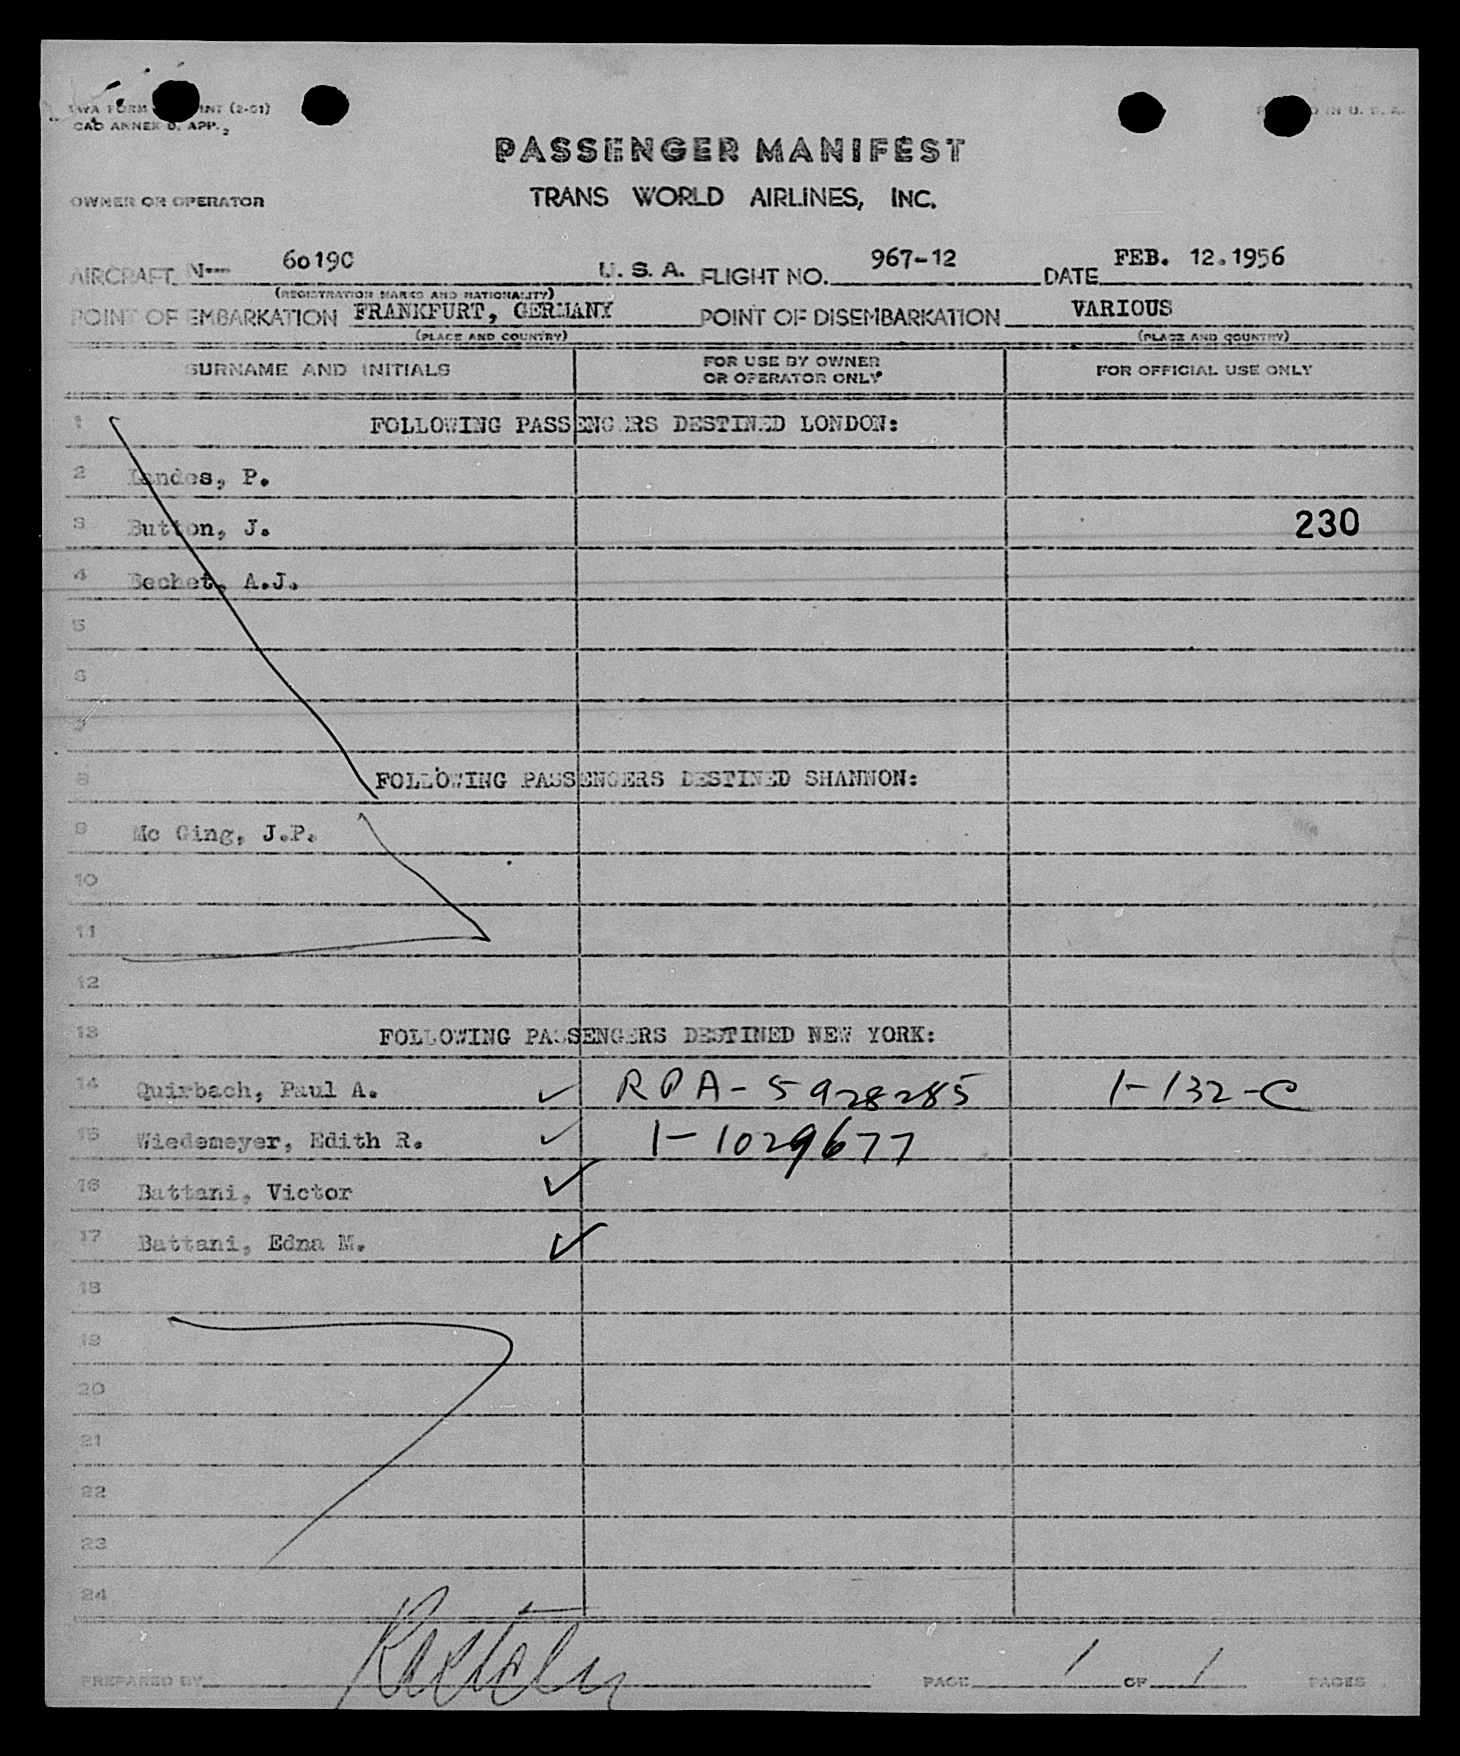 TWA FORM INT (2-51)
CAO ANNEX 9, APP. 2
IN U. S. A.
PASSENGER MANIFEST
OWNER OR OPERATOR TRANS WORLD AIRLINES, INC.
AIRCRAFT N-- 6019C U. S. A. FLIGHT NO. 967-12 DATE FEB. 12.1956
(REGISTRATION MARKS AND NATIONALITY)
POINT OF EMBARKATION FRANKFURT, GERMANY POINT OF DISEMBARKATION VARIOUS
(PLACE AND COUNTRY) (PLACE AND COUNTRY)
SURNAME AND INITIALS FOR USE BY OWNER OR OPERATOR ONLY FOR OFFICIAL USE ONLY
1 FOLLOWING PASSENGERS DESTINED LONDON:
2 Landes, P.
3 Button, J. 230
4 Bechet, A.J.
5
6
7
8 FOLLOWING PASSENGERS DESTINED SHANNON:
9 Mc Ging, J.P.
10
11
12
13 FOLLOWING PASSENGERS DESTINED NEW YORK:
14 Quirbach, Paul A. ✓ RPA-5928285 1-132-C
15 Wiedemeyer, Edith R. ✓ 1-1029677
16 Battani, Victor ✓
17 Battani, Edna M. ✓
18
19
20
21
22
23
24
PREPARED BY PAGE 1 OF 1 PAGES